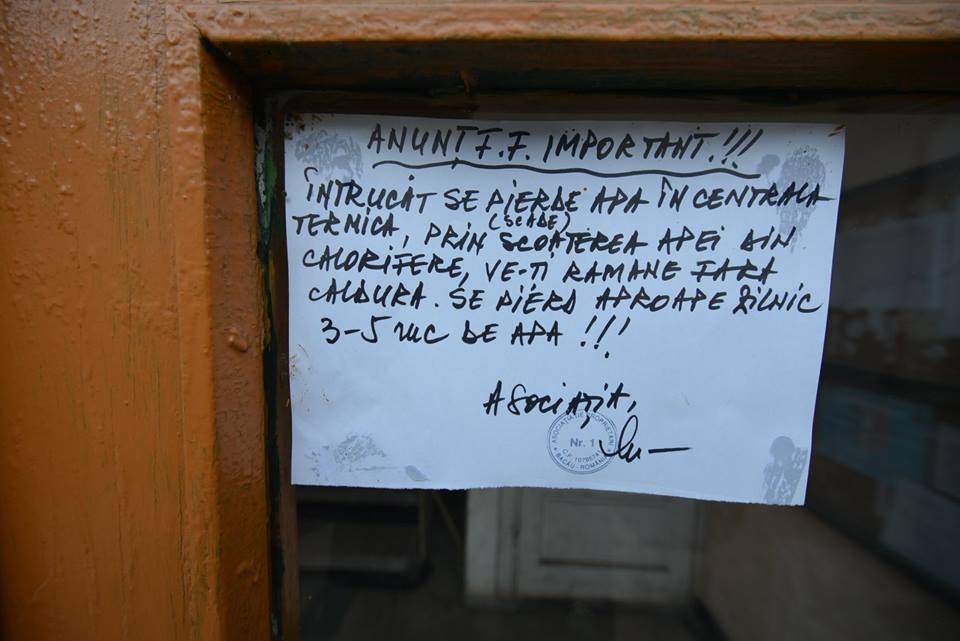 ANUNȚ F.F. IMPORTANT.!!!
ÎNTRUCÂT SE PIERDE APA ÎN CENTRALA
(SCADE)
TERMICA, PRIN SCOATEREA APEI DIN
CALORIFERE, VE-ȚI RAMANE FARA
CALDURA. SE PIERD APROAPE ZILNIC
3-5 mc DE APA !!!
ASOCIAȚIA,
ASOCIAȚIA DE PROPRIETARI
Nr. 1
BACĂU-ROMÂNIA